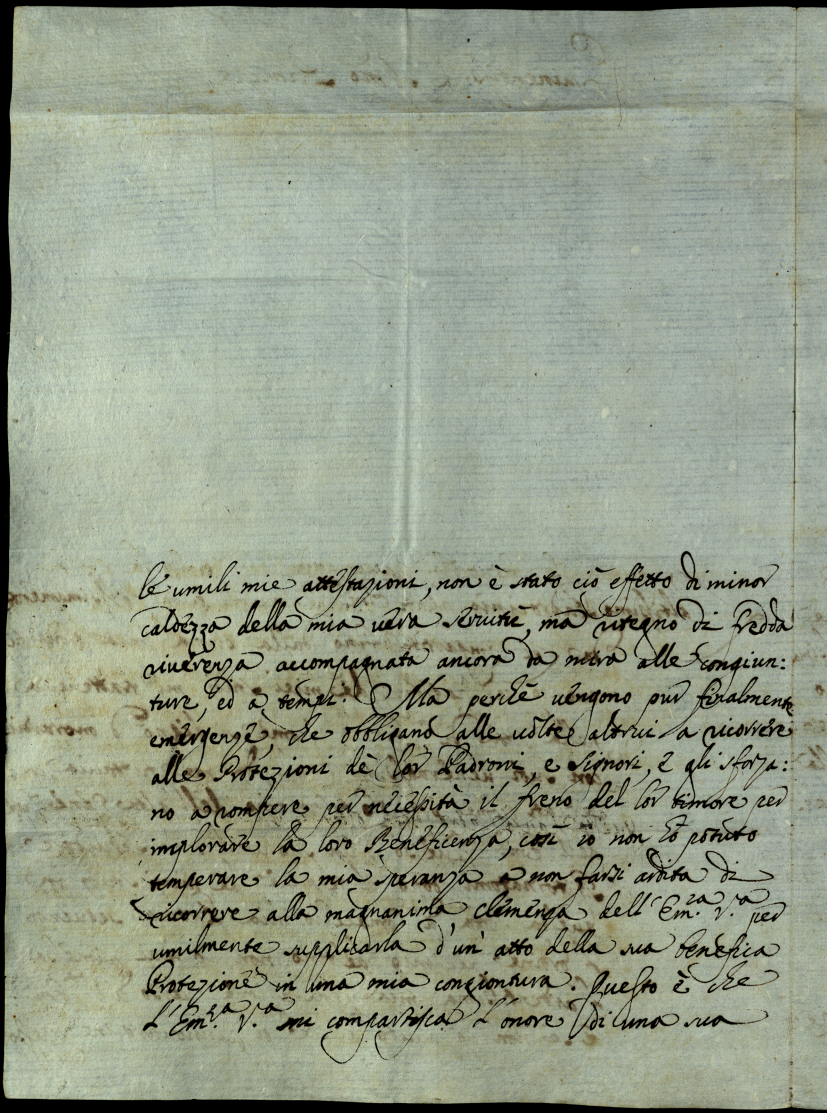 le umili mie attestazioni, non è stato ciò effetto di minor
caldezza della mia vera servitù, ma ritegno di fredda
riverenza accompagnata ancora da mira alle congiun:
ture, ed a tempi. Ma perchè vengono pur finalmente
emergenze, che obbligano alle volte altrui a ricorrere
alle Protezioni de' lor Padroni, e Signori, e gli sforza:
no a rompere per necessità il freno del lor timore per
implorare la loro Beneficenza, così io non hò potuto
temperare la mia speranza a non farsi ardita di
ricorrere alla magnanima clemenza dell' Em.za V.a per
umilmente supplicarla d'un' atto della sua benefica
Protezione in una mia congiontura. Questo è che
l'Em.za V.a mi compartisca l'onore di una sua